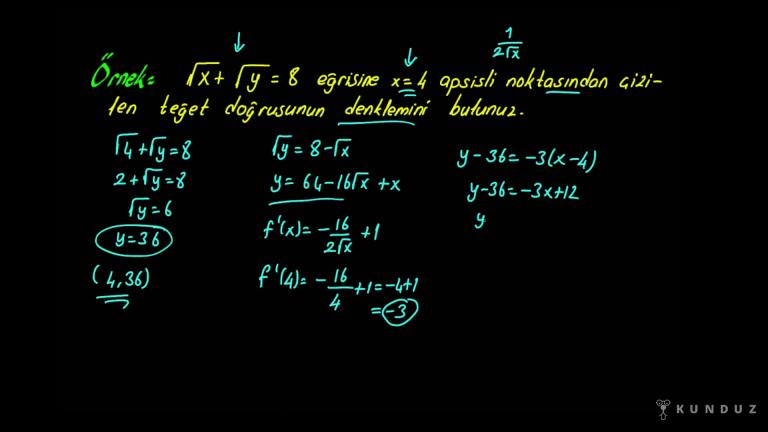 1/(2√x)
Örnek: √x + √y = 8 eğrisine x = 4 apsisli noktasından çizi-
len teğet doğrusunun denklemini bulunuz.
√4 + √y = 8
2 + √y = 8
√y = 6
y = 36
(4, 36)
√y = 8 - √x
y = 64 - 16√x + x
f'(x) = - 16/(2√x) + 1
f'(4) = - 16/4 + 1 = -4+1
= -3
y - 36 = -3(x - 4)
y - 36 = -3x + 12
y
KUNDUZ